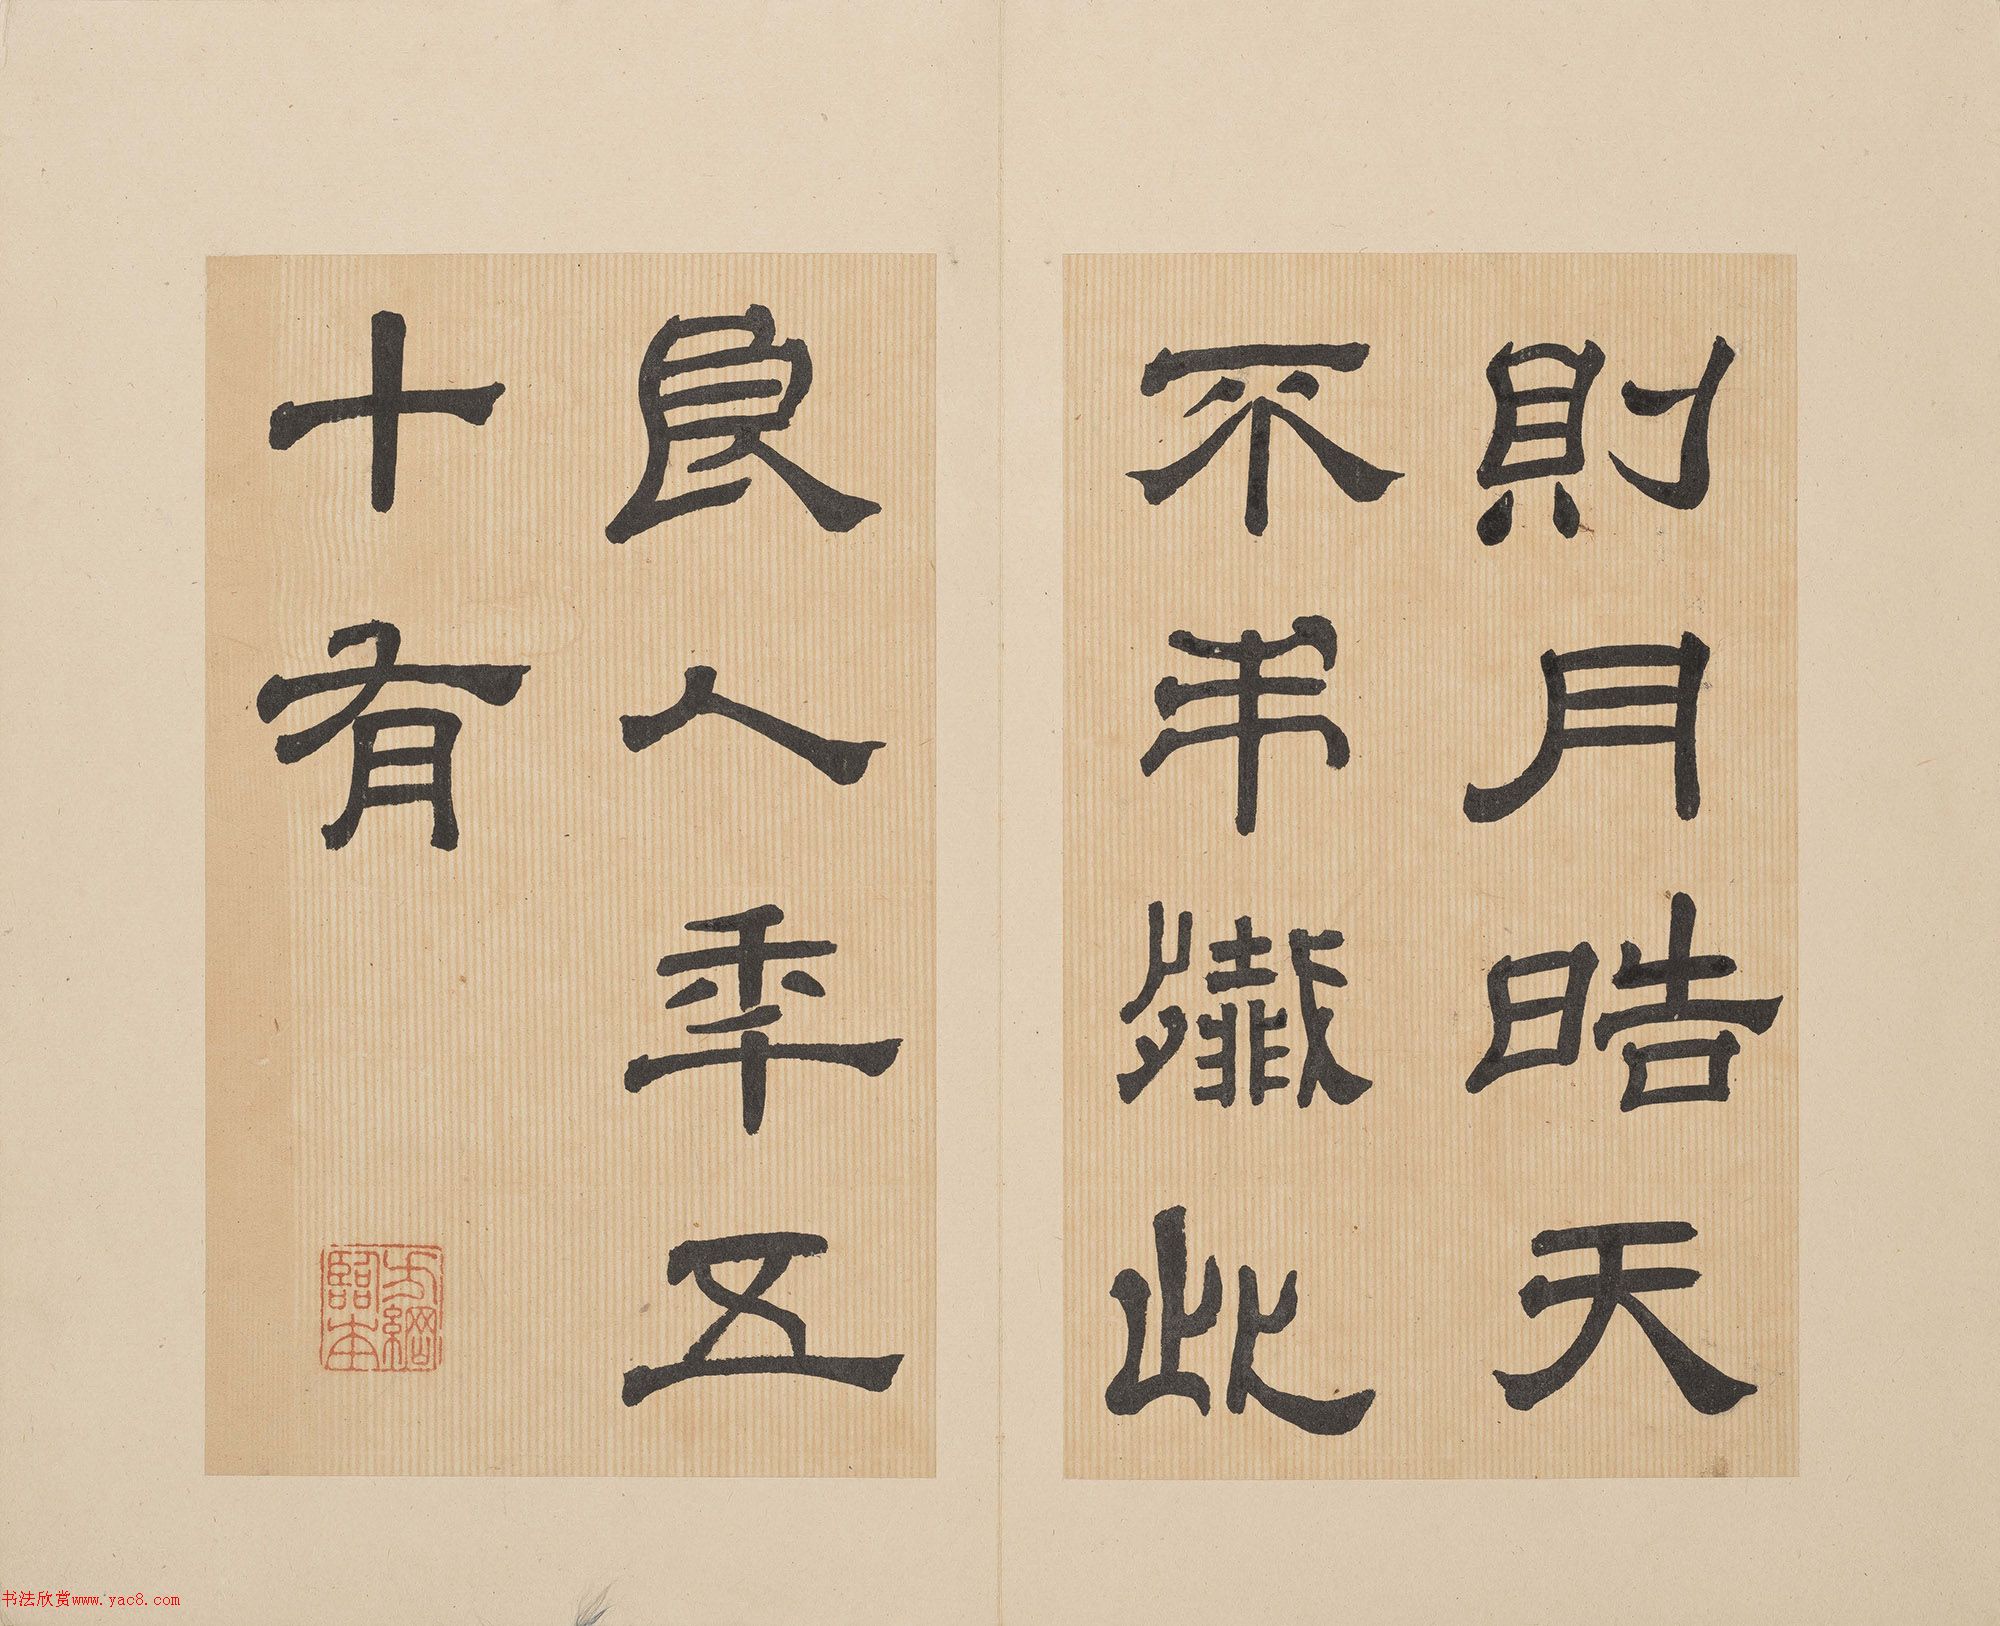 則月晧天
不弔殲此
良人年五
十有
方綱
臨本
书法欣赏www.yac8.com